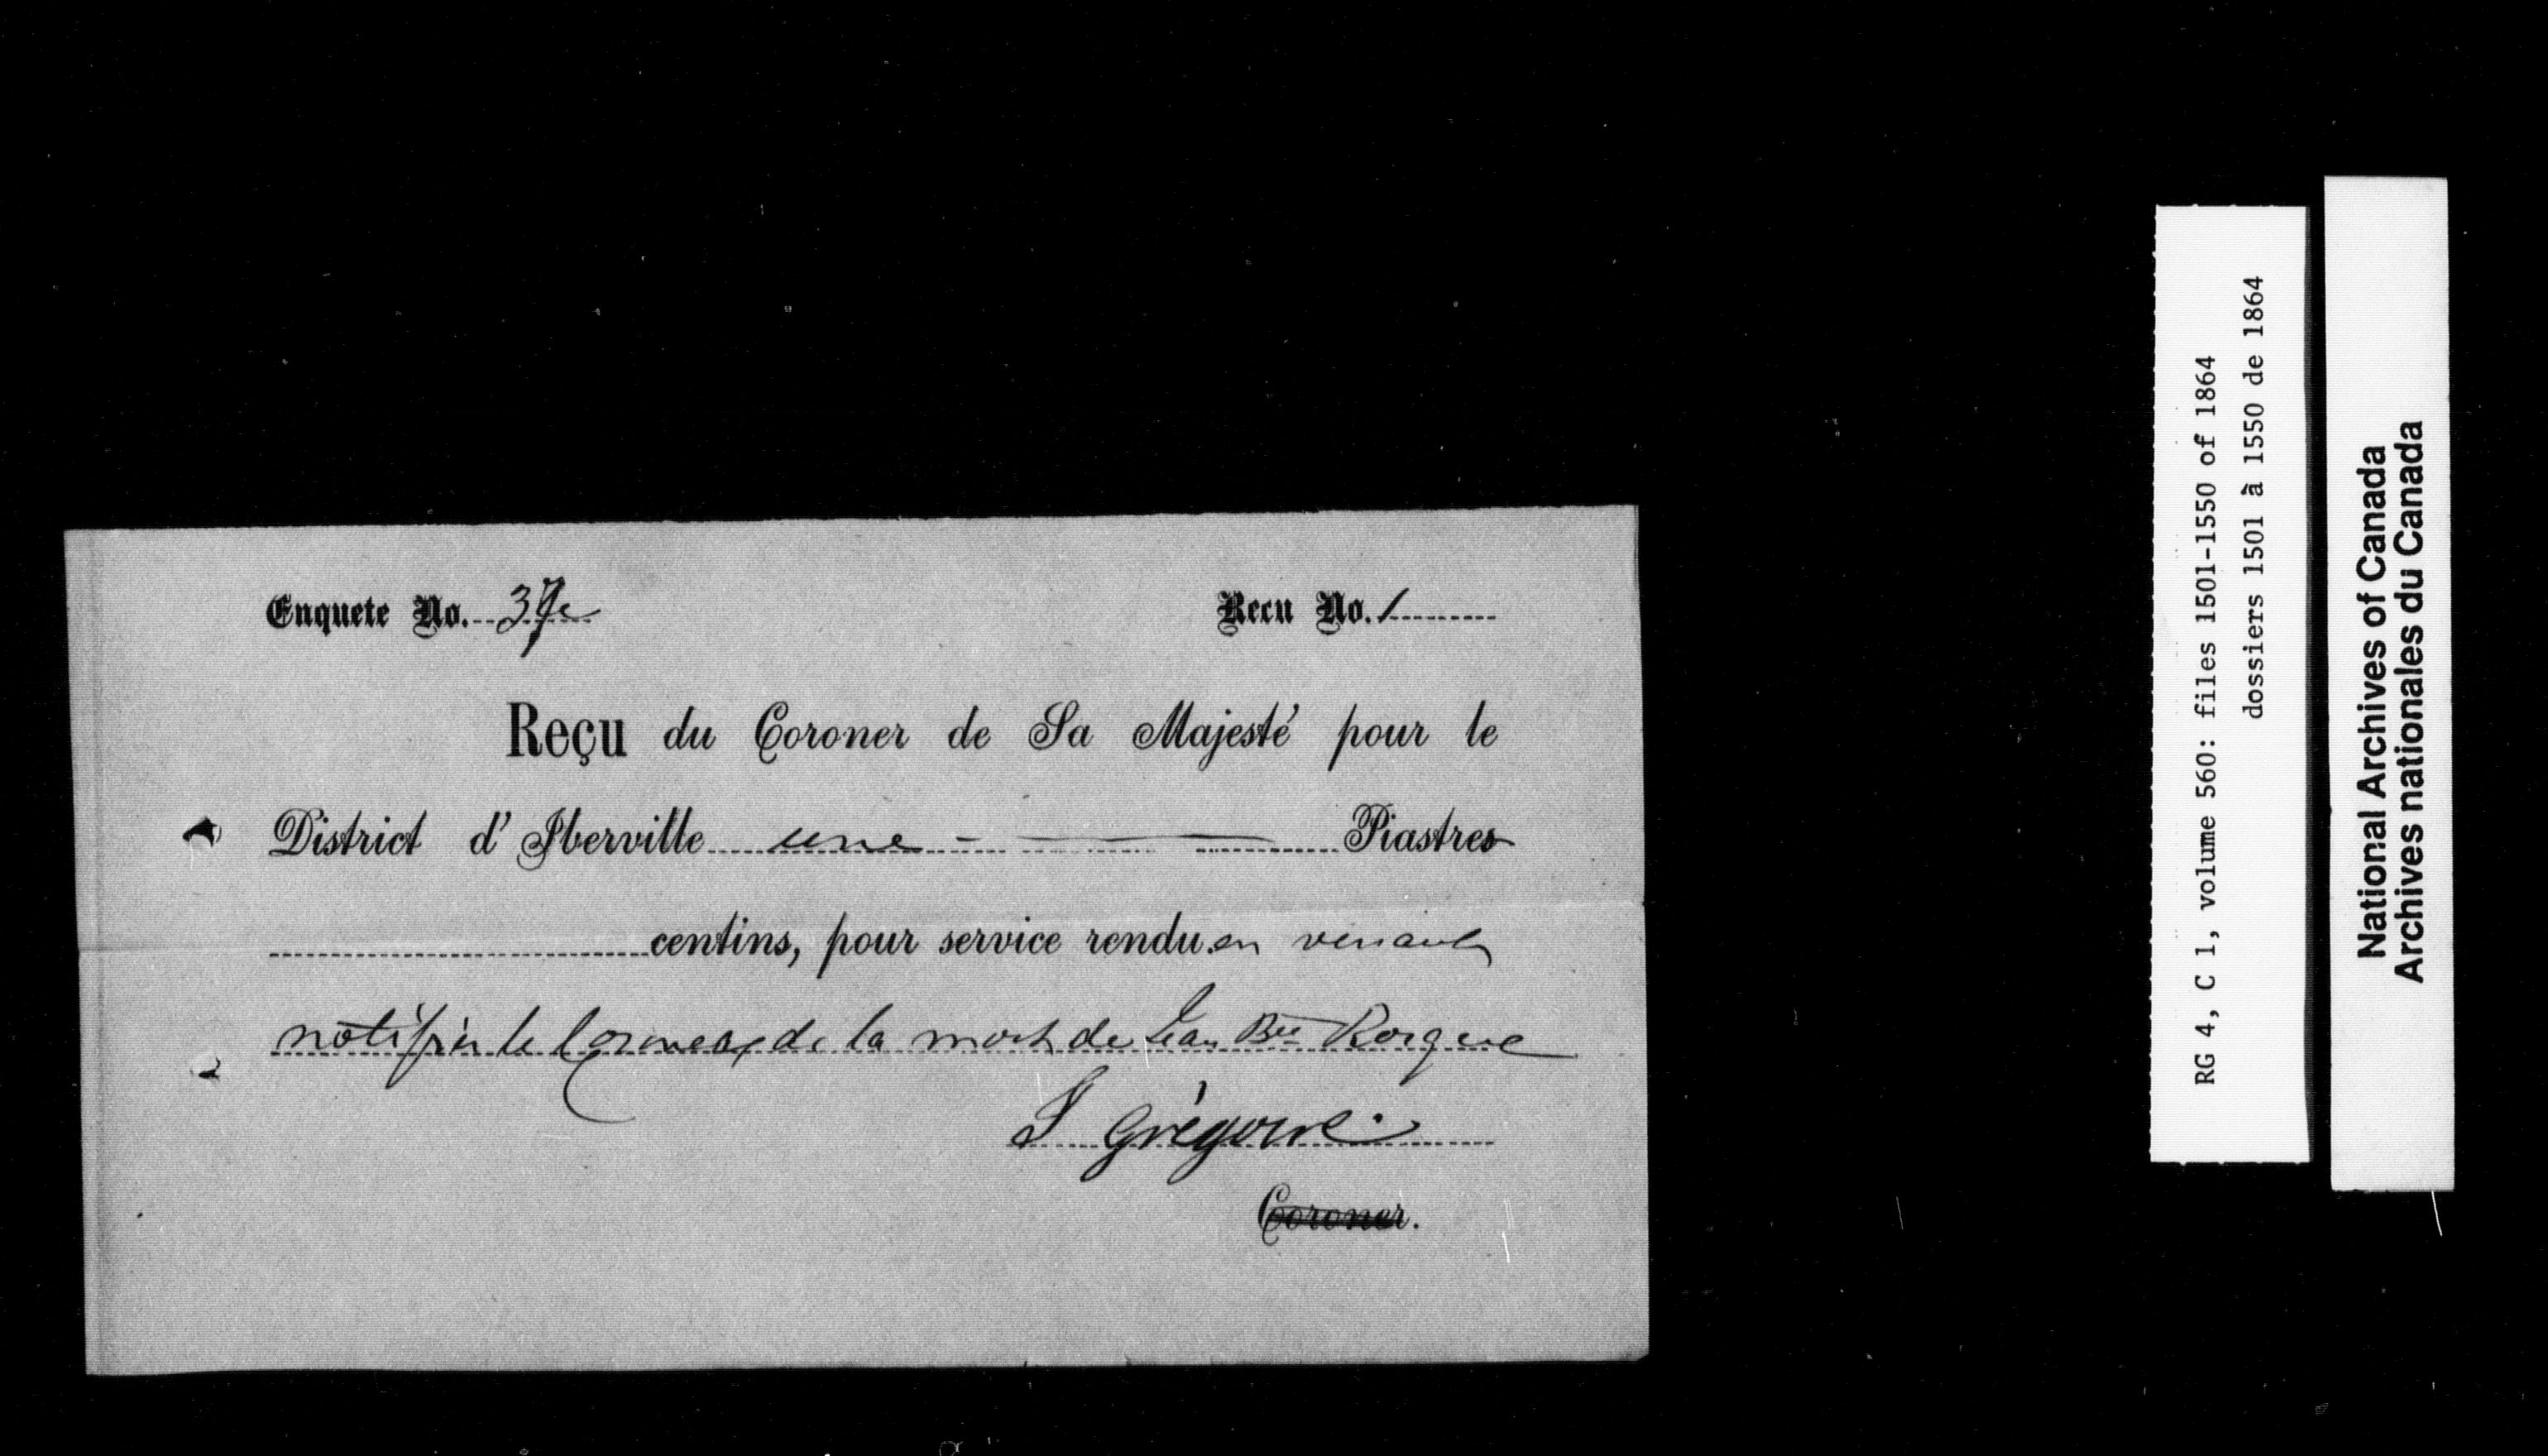 Enquete No. 37e
Recu No. 1
Reçu du Coroner de Sa Majesté pour le
District d'Iberville une Piastres
centins, pour service rendu en venant
notifier le Coroner de la mort de Jean Bte
Grégoire
Coroner.
RG 4, C 1, volume 560: files 1501-1550 of 1864
dossiers 1501 à 1550 de 1864
National Archives of Canada
Archives nationales du Canada